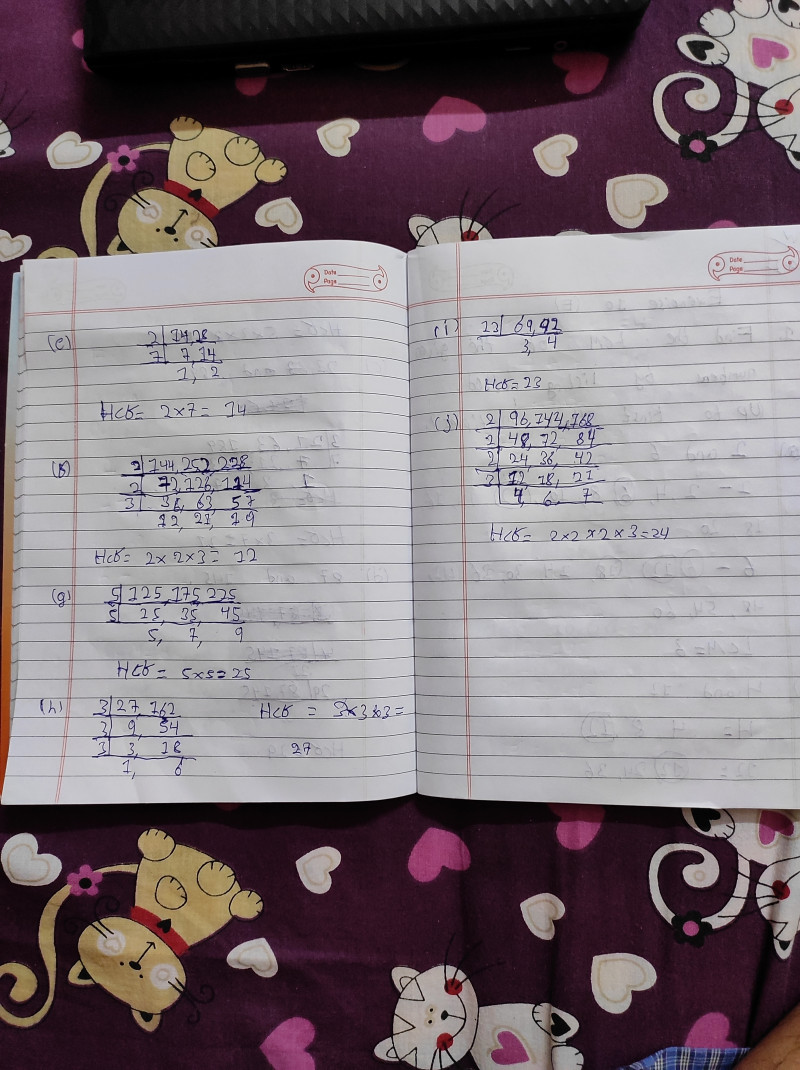 Date
Page
(e) 2 | 14, 28
7 | 7, 14
1, 2
HCF = 2×7 = 14
(f) 2 | 144, 252, 228
2 | 72, 126, 114
3 | 36, 63, 57
12, 21, 19
HCF = 2×2×3 = 12
(g) 5 | 125, 175, 225
5 | 25, 35, 45
5, 7, 9
HCF = 5×5=25
(h) 3 | 27, 162
3 | 9, 54
3 | 3, 18
1, 6
HCF = 3×3×3 =
27
Date
Page
(i) 23 | 69, 92
3, 4
HCF = 23
(j) 2 | 96, 144, 168
2 | 48, 72, 84
2 | 24, 36, 42
3 | 12, 18, 21
4, 6, 7
HCF = 2×2×2×3=24